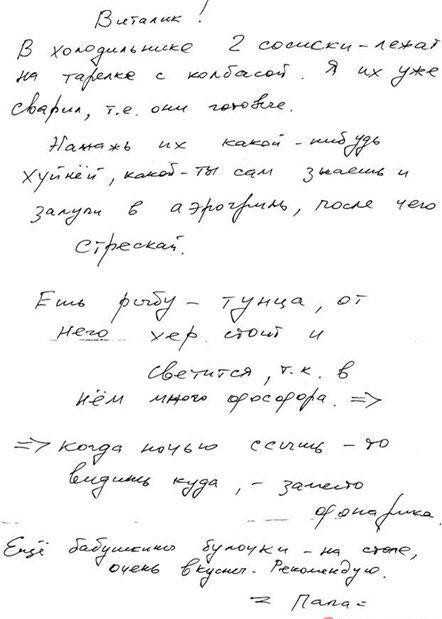 Виталик!
В холодильнике 2 сосиски – лежат
на тарелке с колбасой. Я их уже
сварил, т.е. они готовые.
Намажь их какой-нибудь
хуйнёй, какой – ты сам знаешь и
залупи в аэрогриль, после чего
стрескай.
Ешь рыбу – тунца, от
него хер стоит и
светится, т.к. в
нём много фосфора. =>
=> когда ночью ссышь – то
видишь куда, – заместо
фонарика.
Ещё бабушкины булочки – на столе,
очень вкусны. Рекомендую.
= Папа =